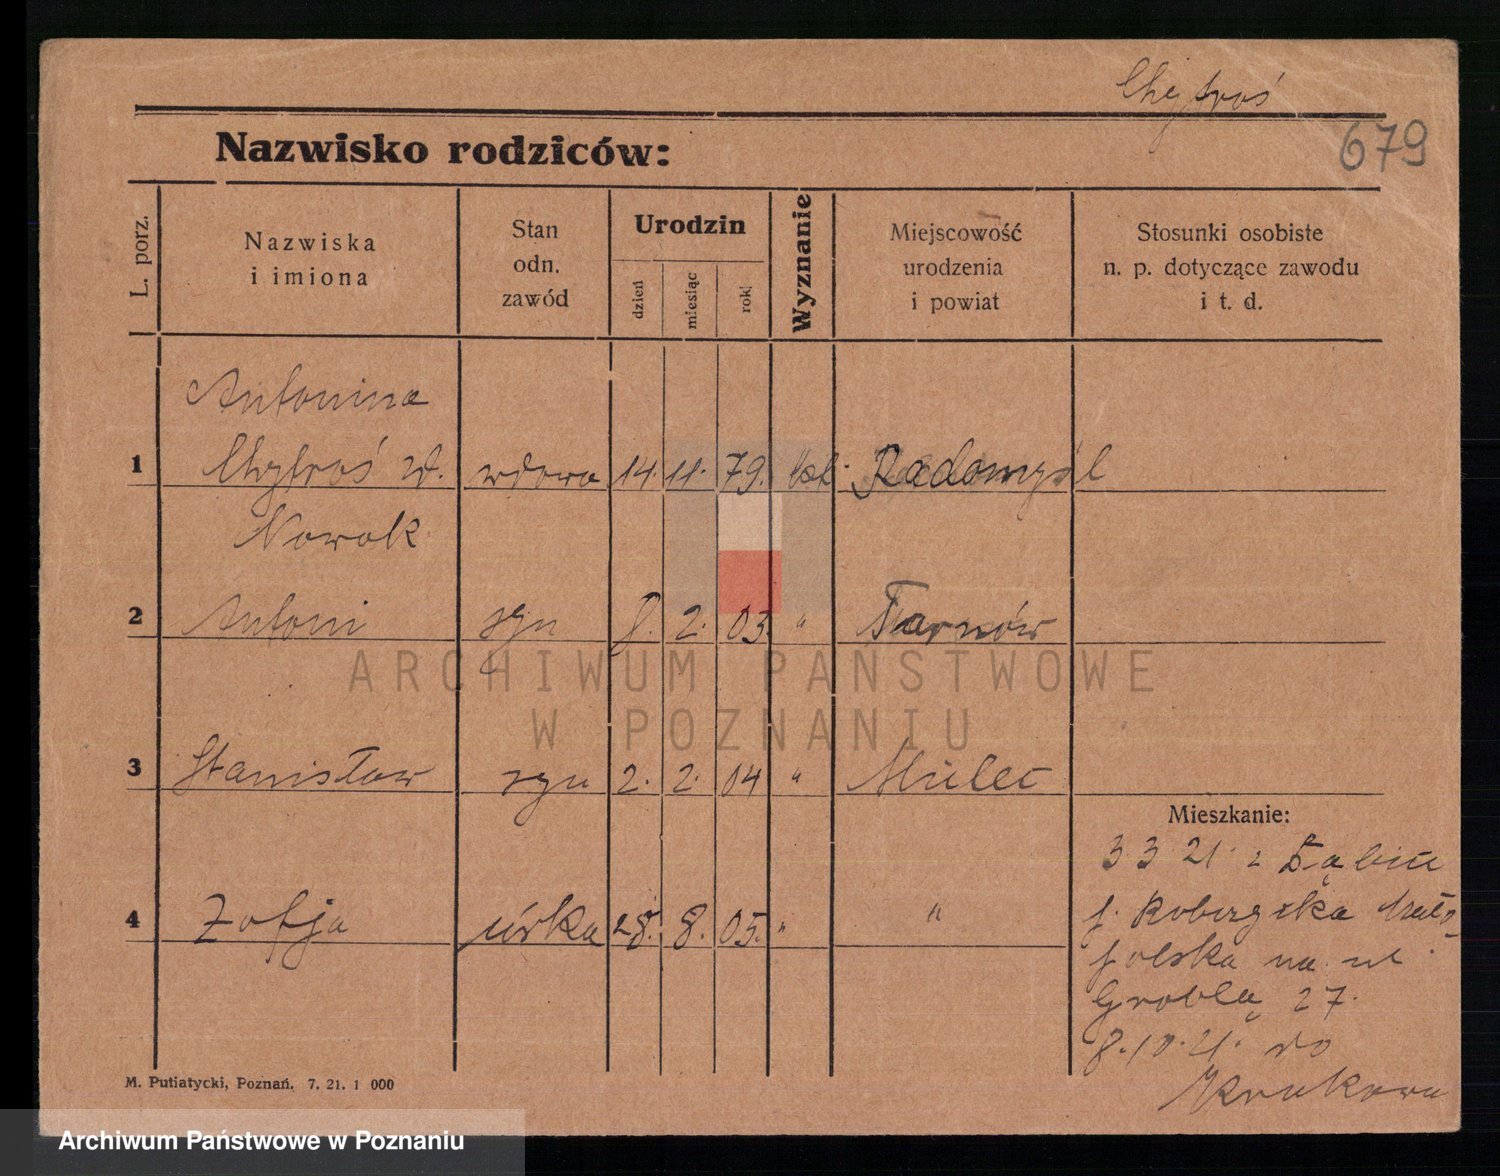 Chytroś
679
Nazwisko rodziców:
L. porz.
Nazwiska
i imiona
Stan
odn.
zawód
Urodzin
dzień
miesiąc
rok
Wyznanie
Miejscowość
urodzenia
i powiat
Stosunki osobiste
n. p. dotyczące zawodu
i t. d.
Antonina
1 Chytroś wd. wdowa 14. 11. 79. kat. Radomyśl
Nowak
2 Antoni syn 8. 2. 03. " Tarnów
3 Stanisław syn 2. 2. 04 " Mielec
4 Zofja córka 28. 8. 05. " "
Mieszkanie:
3 3 21 z Dąbiu
p. Małopolska na ul.
Groblą 27.
8.10.21. do
Krakowa
M. Putiatycki, Poznań. 7. 21. 1 000
ARCHIWUM PAŃSTWOWE
W POZNANIU
Archiwum Państwowe w Poznaniu